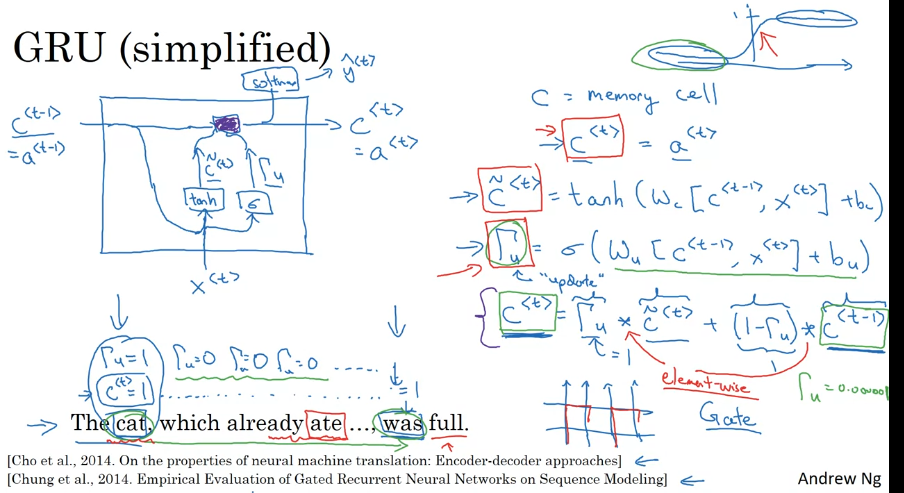 GRU (simplified)
softmax → ŷ<t>
c<t-1>
= a<t-1>
c<t>
= a<t>
c̃<t>
Γu
tanh
σ
x<t>
1
C = memory cell
→ c<t> = a<t>
→ c̃<t> = tanh (Wc [c<t-1>, x<t>] + bc)
→ Γu = σ (Wu [c<t-1>, x<t>] + bu)
"update"
c<t> = Γu * c̃<t> + (1-Γu) * c<t-1>
= 1
element-wise
Γu = 0.000001
Gate
Γu=1 Γu=0 Γu=0 Γu=0 .....
c<t>=1 ............ =1
The cat, which already ate ...., was full.
[Cho et al., 2014. On the properties of neural machine translation: Encoder-decoder approaches] ←
[Chung et al., 2014. Empirical Evaluation of Gated Recurrent Neural Networks on Sequence Modeling] ←
Andrew Ng